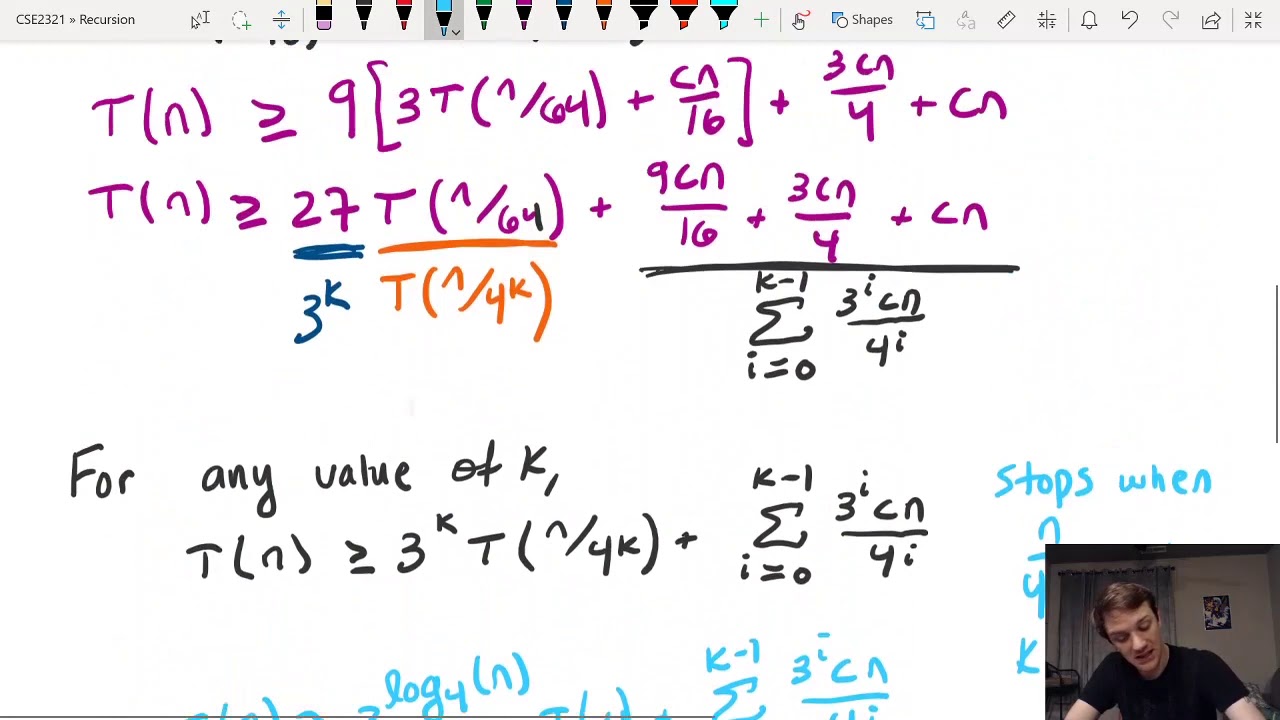 CSE2321 » Recursion
Shapes
T(n) ≥ 9[3T(n/64) + cn/16] + 3cn/4 + cn
T(n) ≥ 27 T(n/64) + 9cn/16 + 3cn/4 + cn
3^k T(n/4^k) k-1 ∑ i=0 3^i cn/4^i
For any value of k,
T(n) ≥ 3^k T(n/4k) + k-1 ∑ i=0 3^i cn/4^i
stops when
n
4
k
3^log₄(n) k-1 ∑ 3^i cn/4^i